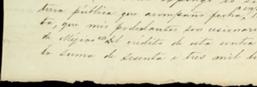 tura pública que acompaño fecha
ta, que mis poderdantes son cesionarios
de Méjico del crédito de esta contra
la suma de sesenta y tres mil